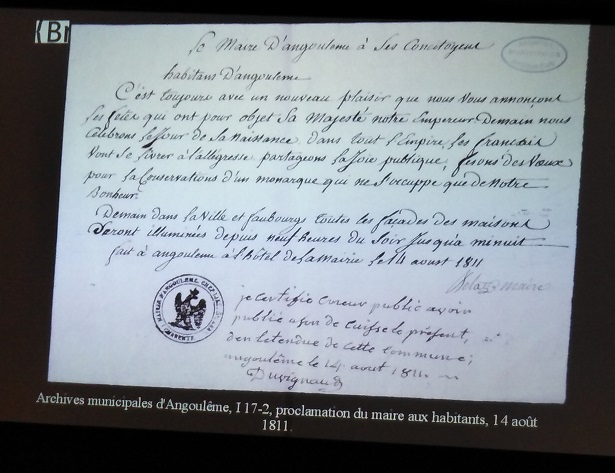 {Br
Le Maire D'angouleme à Ses Concitoyens
habitans D'angouleme
C'est toujours avec un nouveau plaisir que nous vous annoncons
les fêtes qui ont pour objet Sa Majesté notre Empereur Demain nous
Célébrons le Jour de sa Naissance. dans tout l'Empire, les francais
Vont se livrer à l'allégresse partageons la Joie publique, fesons des Vœux
pour la Conservations d'un monarque qui ne s'occuppe que de Notre
Bonheur.
Demain dans la Ville et faubourgs toutes les façades des maisons
Seront illuminées depuis neuf heures du Soir Jusqu'à minuit
fait à angouleme à l'Hôtel de la Mairie le 14 aoust 1811
maire
MAIRIE D'ANGOULEME
je certifie crieur public avoir
publié a son de Caisse le présent,
dan letendue de cette Commune;
angoulême le 14 aout 1811
Duvignaud
Archives municipales d'Angoulême, I 17-2, proclamation du maire aux habitants, 14 août
1811.